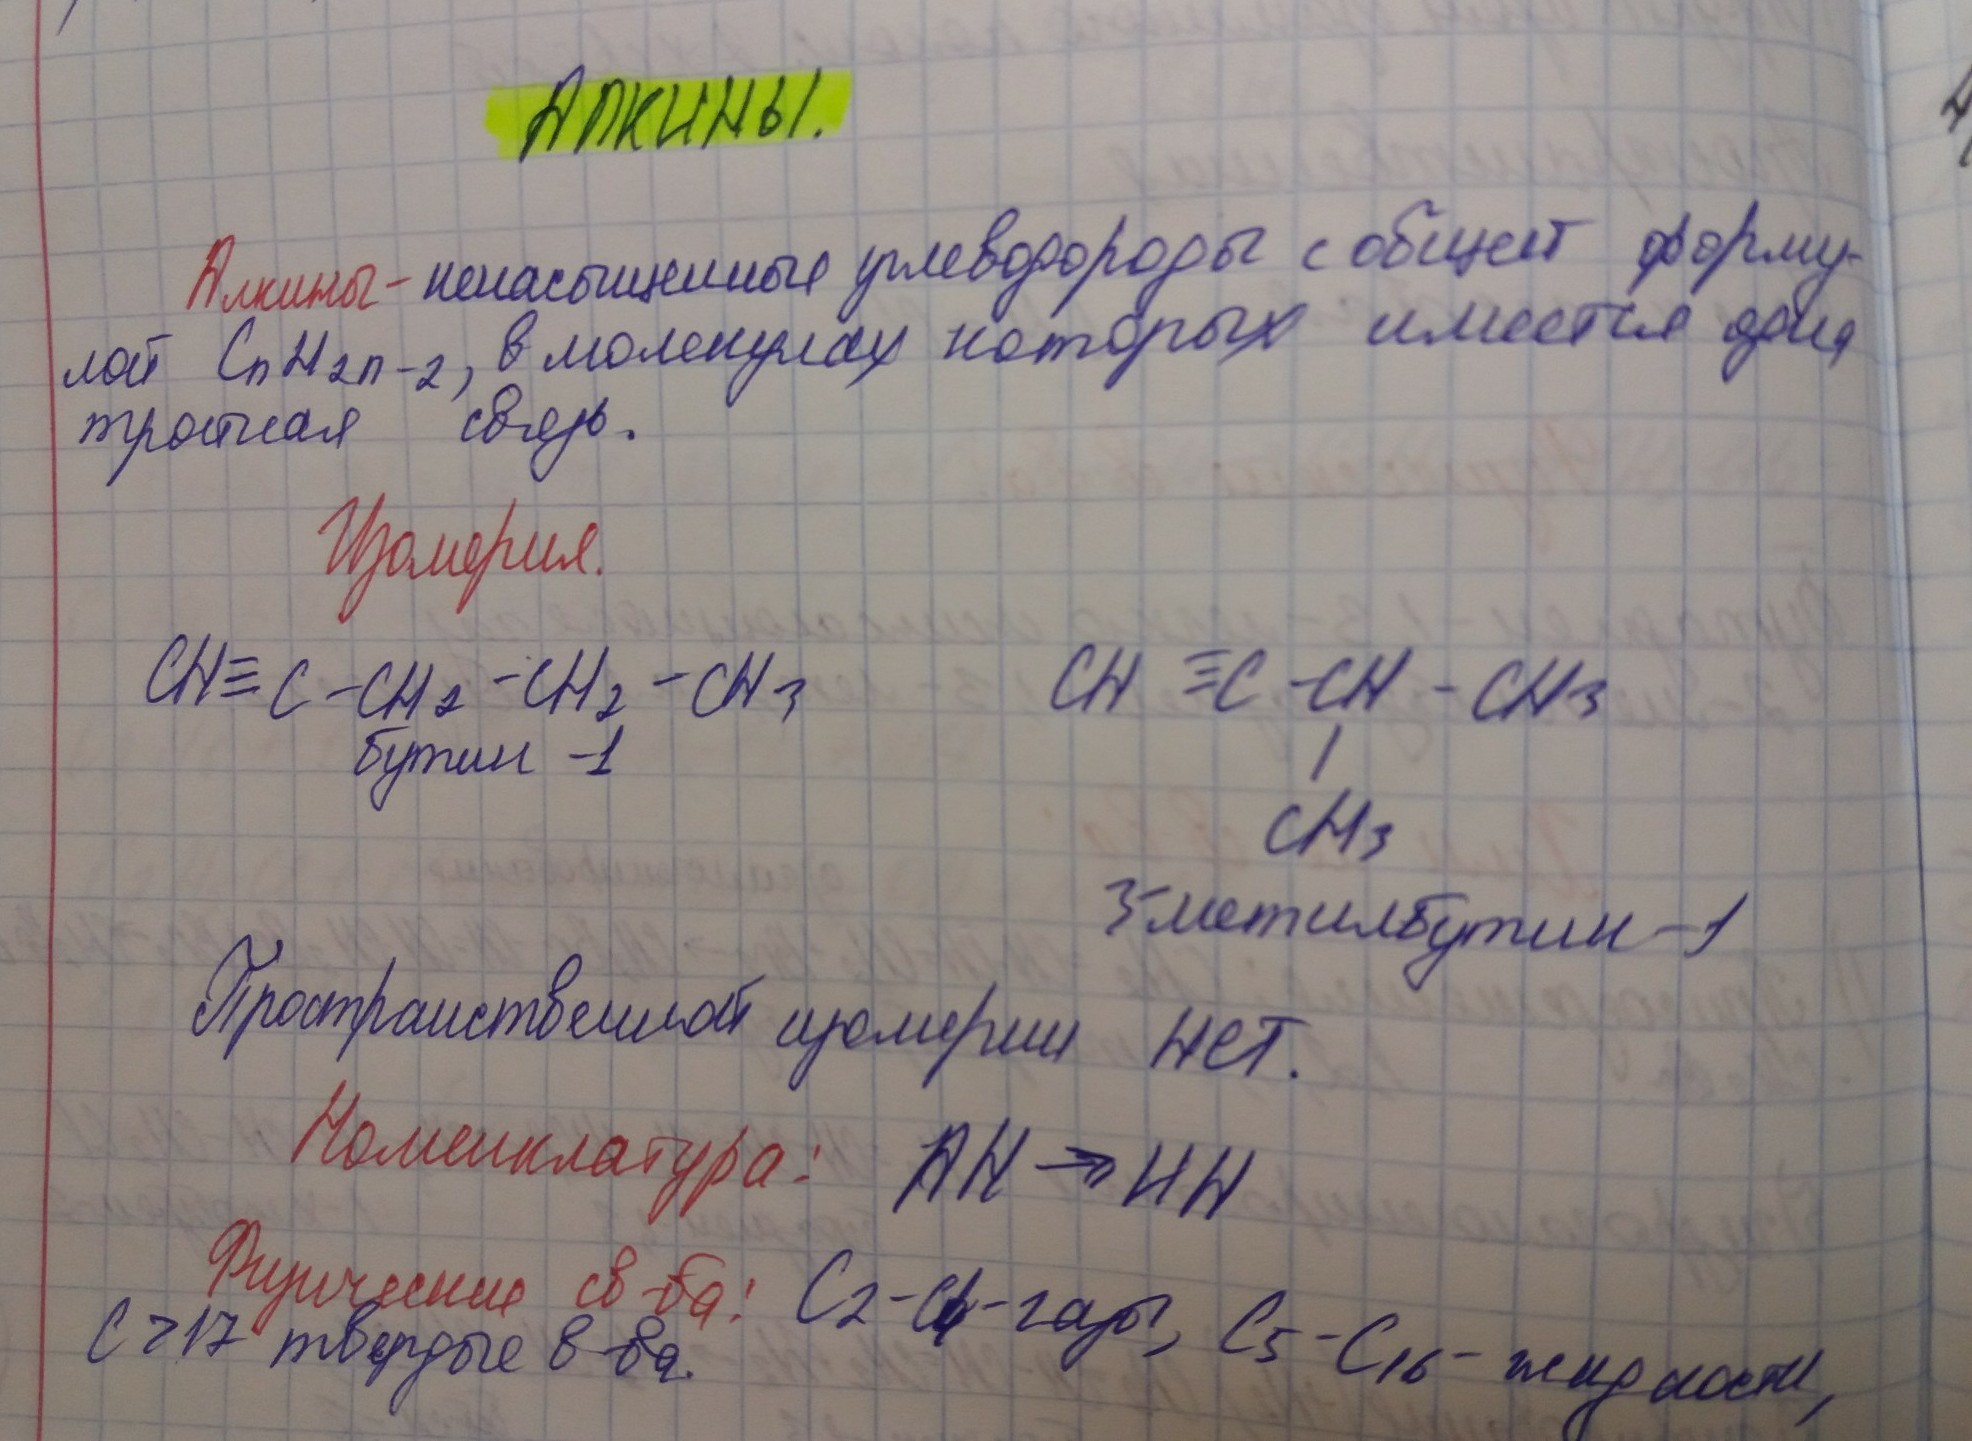 Алкины.
Алкины - ненасыщенные углеводороды с общей форму-
лой CnH2n-2, в молекулах которых имеется одна
тройная связь.
Изомерия.
CH≡C-CH2-CH2-CH3 CH≡C-CH-CH3
бутин-1
CH3
3-метилбутин-1
Пространственной изомерии нет.
Номенклатура: АН → ИН
Физические св-ва: C2-C4-газы, C5-C16-жидкости,
C>17 твердые в-ва.